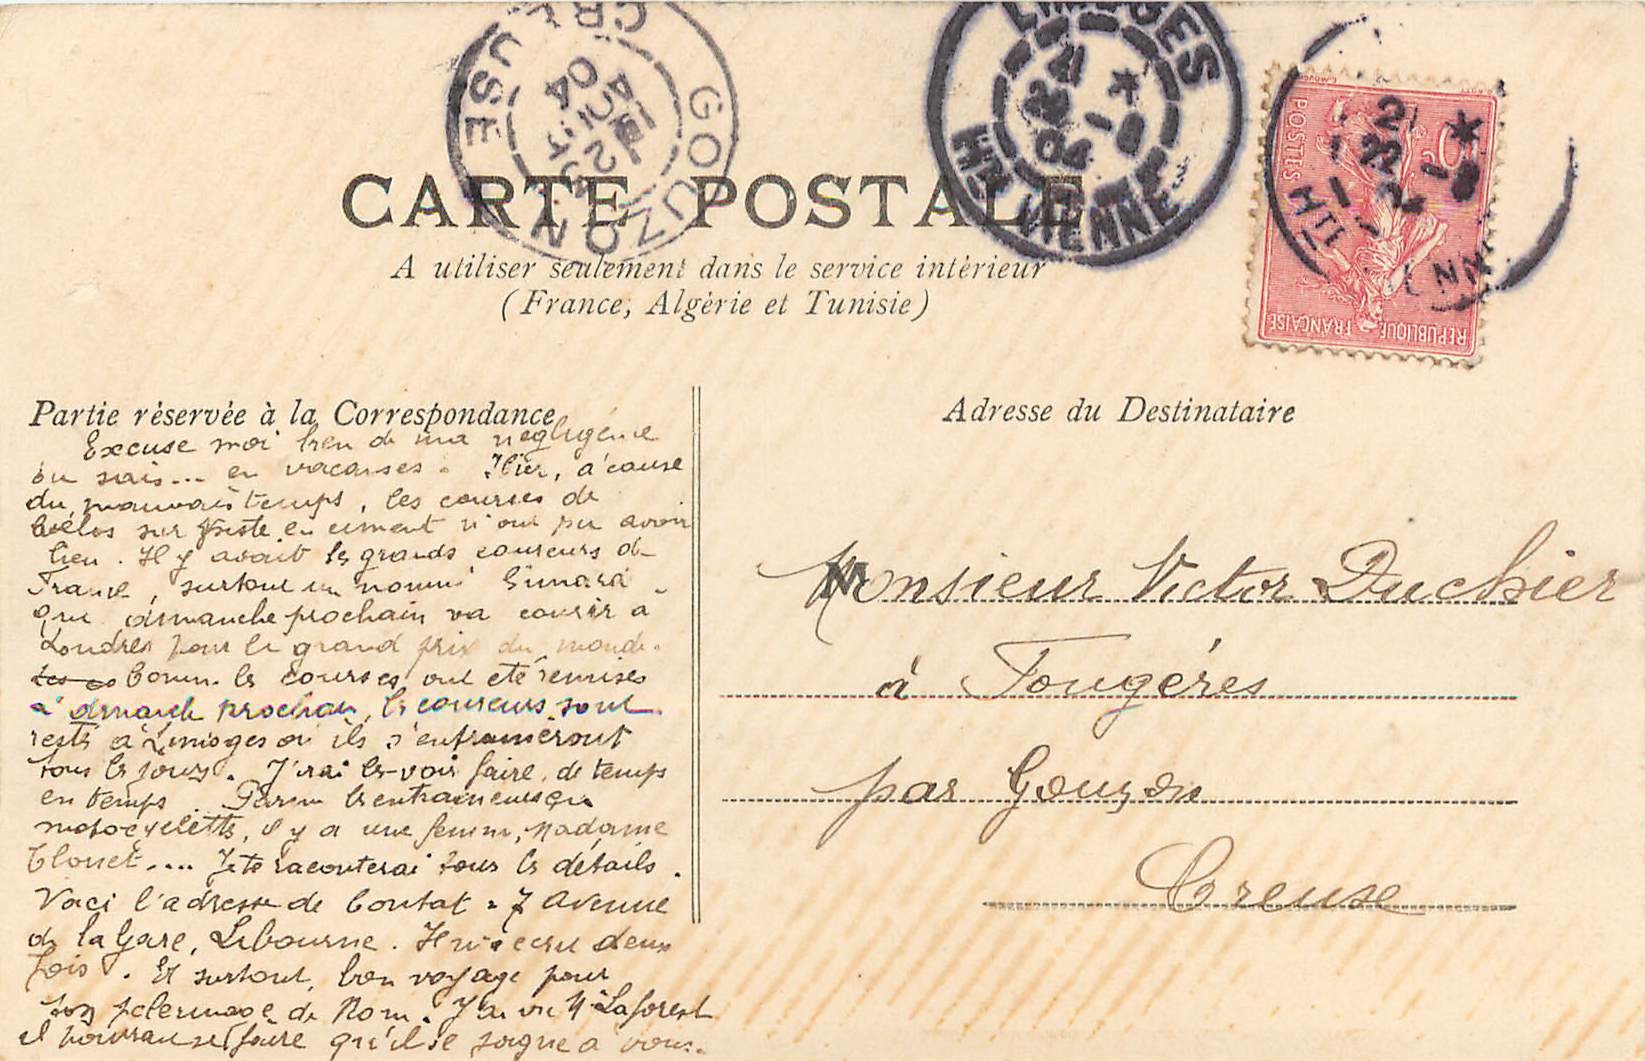 GOUZON
CREUSE
LIMOGES
Hte VIENNE
POSTES
REPUBLIQUE FRANÇAISE
CARTE POSTALE
A utiliser seulement dans le service intérieur
(France, Algérie et Tunisie)
Partie réservée à la Correspondance
Adresse du Destinataire
Excuse moi bien de ma négligence
tu sais... en vacanses. Hier, à cause
du mauvais temps, les courses de
vélos sur piste en ciment n'ont pu avoir
lieu. Il y avait les grands coureurs de
France, surtout un nommé
que dimanche prochain va courir à
Londres pour le grand prix du monde.
Comme les courses ont été remises
à dimanche prochain, les coureurs sont
restés à Limoges où ils s'entraineront
tous les jours. J'irai les voir faire, de temps
en temps. Parmi les entraineurs
motocyclettes, il y a une femme, Madame
.... Je te raconterai tous les détails.
Voici l'adresse de Contat = 7 Avenue
de la Gare, Libourne. Il m'a écrit deux
fois. Et surtout, bon voyage pour
ton pelerinage de Rom. J'ai vu Mr Laforest
il pourrait faire qu'il se joigne à vous.
Monsieur Victor Duchier
à Fougéres
par Gouzon
Creuse